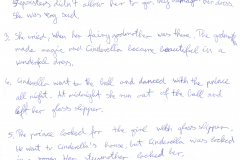 stepsisters didn't allow her to go, they damaged her dress.
She was very sad.
3. She cried, when her fairy godmother was there. The godmother
made magic and Cinderella became beautiful in a
wonderful dress.
4. Cinderella went to the ball and danced with the prince
all night. At midnight she run out of the ball and
left her glass slipper.
5. The prince looked for the girl with glass slipper.
He went to Cinderella's house, but Cinderella was locked
in a room. Her stepmother locked her.